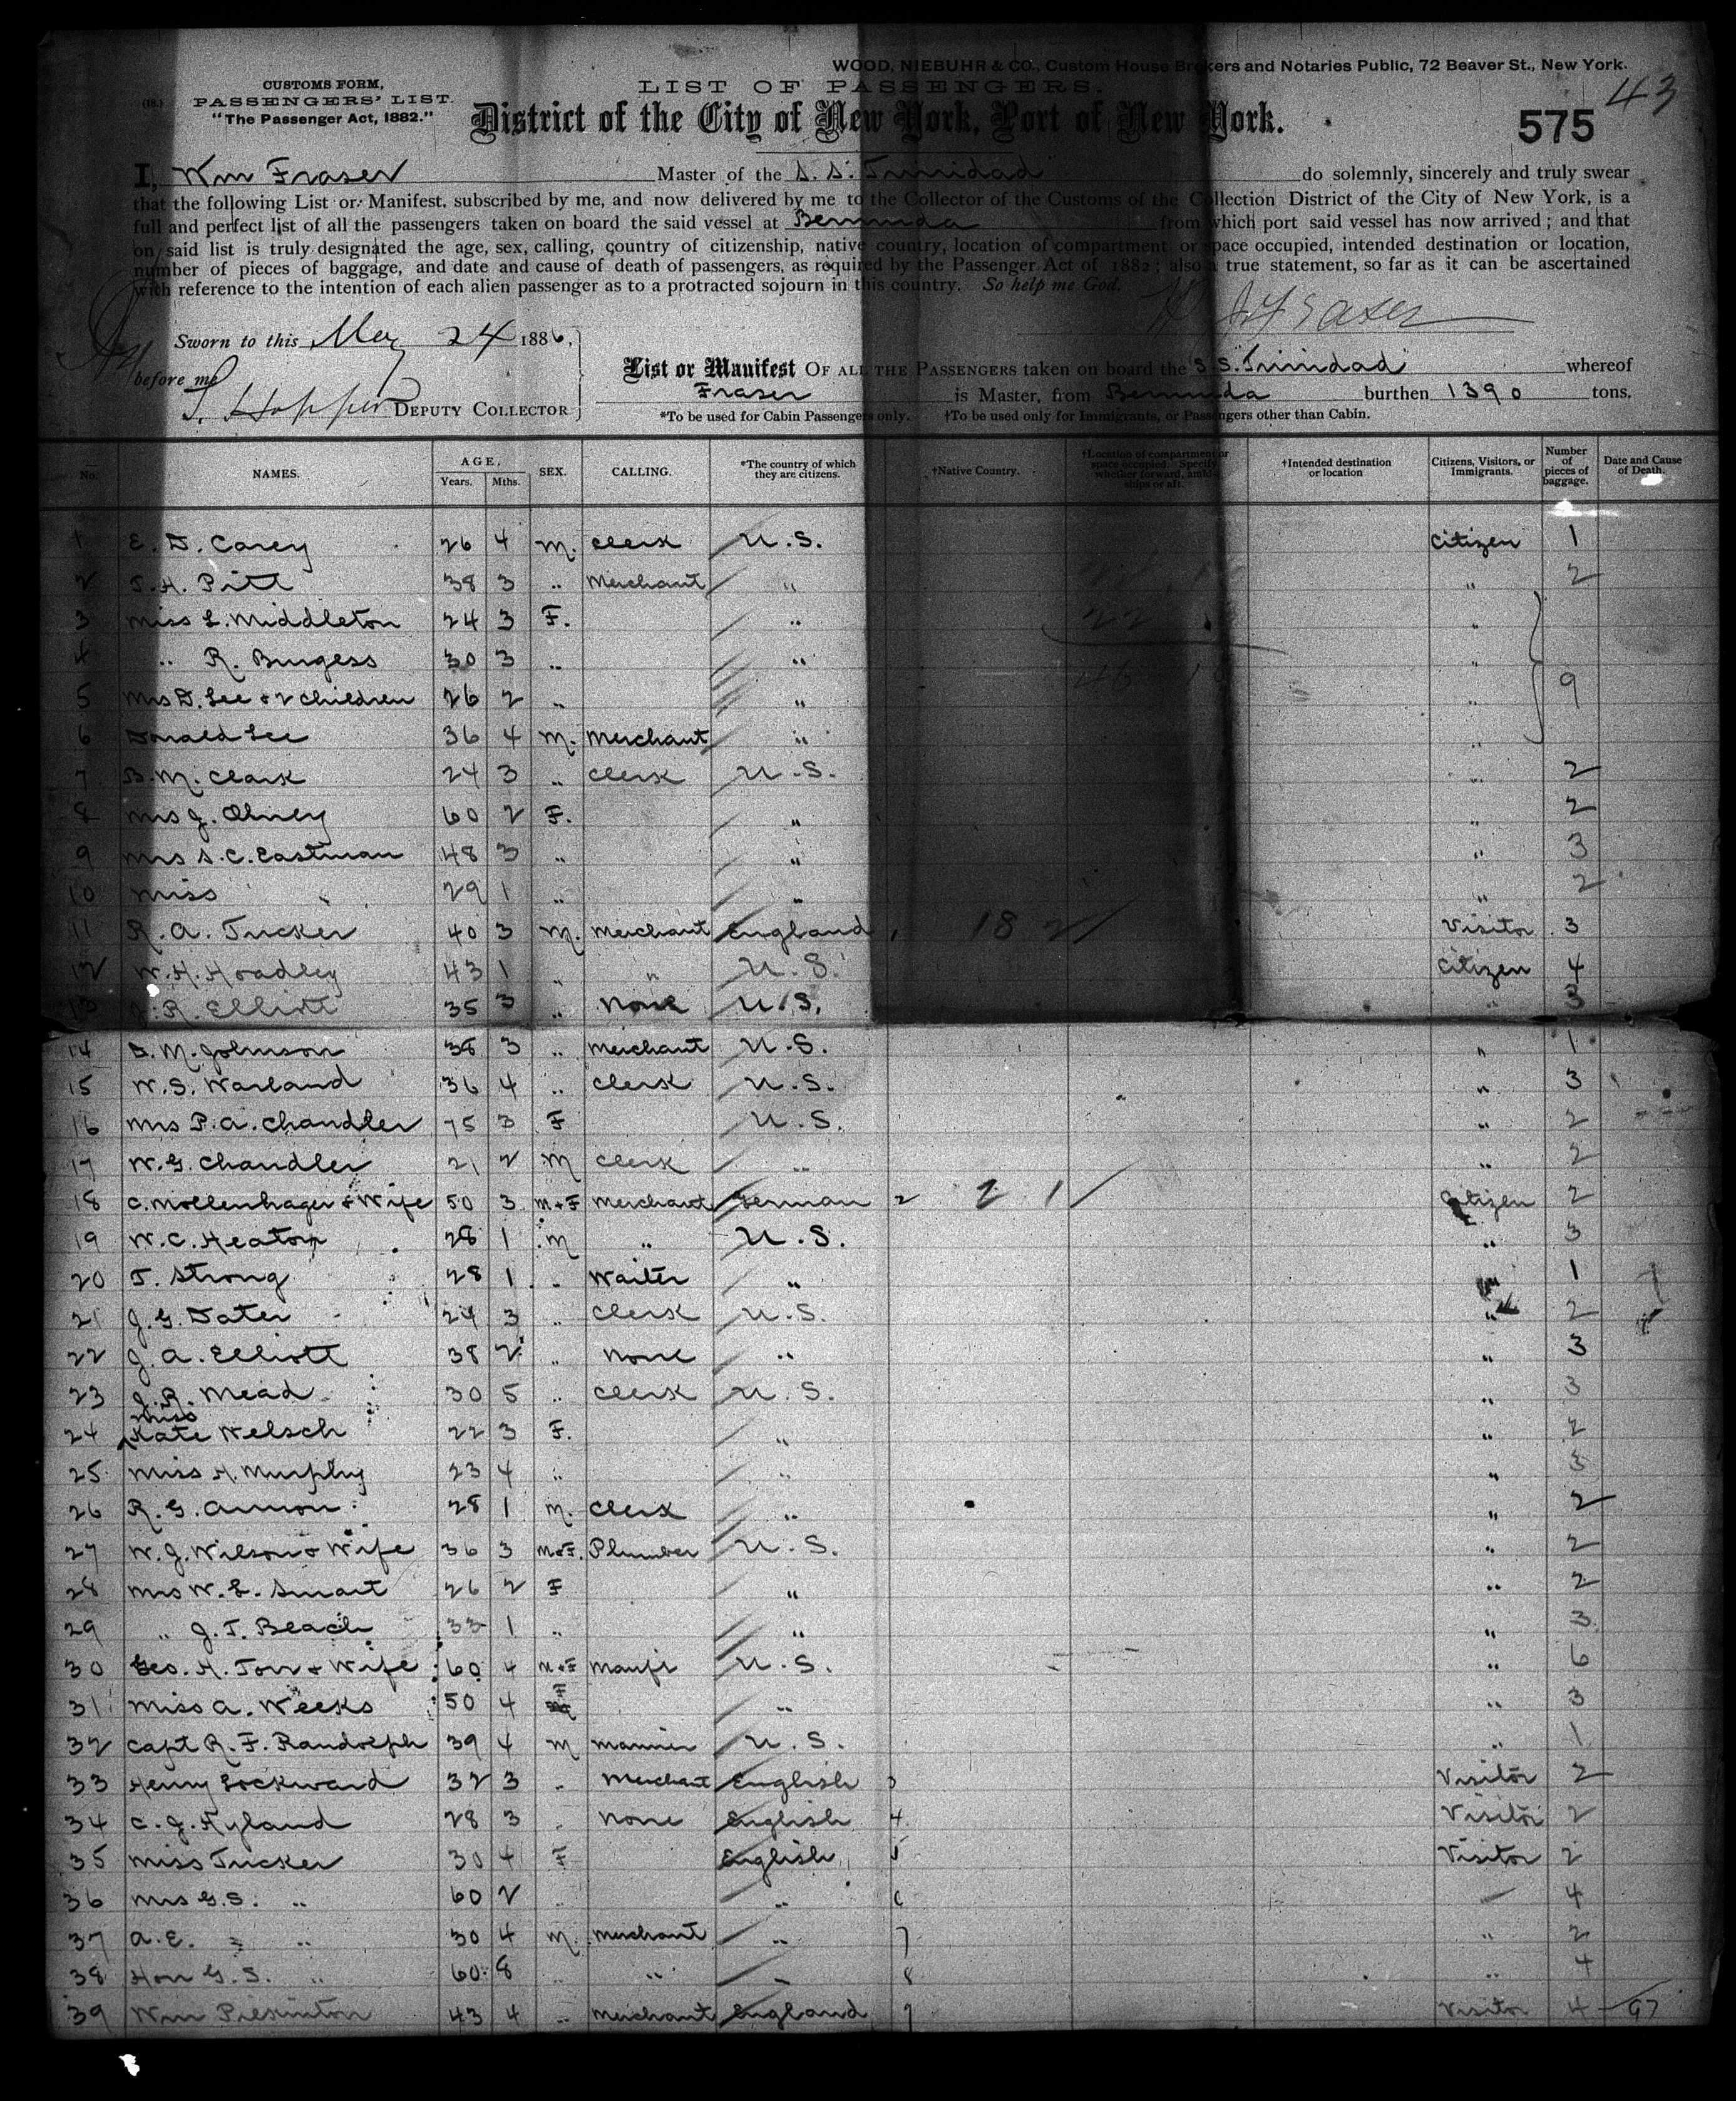 WOOD, NIEBUHR & CO., Custom House Brokers and Notaries Public, 72 Beaver St., New York.
43
(18.)
CUSTOMS FORM,
PASSENGERS' LIST.
"The Passenger Act, 1882."
LIST OF PASSENGERS.
District of the City of New York, Port of New York.
575
I, Wm Fraser Master of the S. S. Trinidad do solemnly, sincerely and truly swear
that the following List or Manifest, subscribed by me, and now delivered by me to the Collector of the Customs of the Collection District of the City of New York, is a
full and perfect list of all the passengers taken on board the said vessel at Bermuda from which port said vessel has now arrived; and that
on said list is truly designated the age, sex, calling, country of citizenship, native country, location of compartment or space occupied, intended destination or location,
number of pieces of baggage, and date and cause of death of passengers, as required by the Passenger Act of 1882; also a true statement, so far as it can be ascertained
with reference to the intention of each alien passenger as to a protracted sojourn in this country. So help me God.
Fraser
Sworn to this May 24 1886,
before me
Hopper DEPUTY COLLECTOR
List or Manifest OF ALL THE PASSENGERS taken on board the S.S. Trinidad whereof
Fraser is Master, from Bermuda burthen 1390 tons.
*To be used for Cabin Passengers only. †To be used only for Immigrants, or Passengers other than Cabin.
No. NAMES. AGE. Years. Mths. SEX. CALLING. *The country of which they are citizens. †Native Country. †Location of compartment or space occupied. Specify whether forward, amidships or aft. †Intended destination or location Citizens, Visitors, or Immigrants. Number of pieces of baggage. Date and Cause of Death.
1 E. D. Carey 26 4 M. Clerk U.S. Citizen 1
2 T. H. Pitt 38 3 " Merchant " " 2
3 Miss L. Middleton 24 3 F. " " 22
4 " R. Burgess 30 3 " " "
5 Mrs D. Lee & 2 children 26 2 " " " 9
6 Donald Lee 36 4 M. Merchant " "
7 B. M. Clark 24 3 " Clerk U.S. " 2
8 Mrs J. Olney 60 2 F. " " 2
9 Mrs S. C. Eastman 48 3 " " " 3
10 Miss " 29 1 " " " 2
11 R. A. Tucker 40 3 M. Merchant England 1 18 2 Visitor 3
12 W. H. Hoadley 43 1 " " U.S. Citizen 4
13 J. R. Elliott 35 3 " None U.S. " 3
14 D. M. Johnson 38 3 " Merchant U.S. " 1
15 W. S. Warland 36 4 " Clerk U.S. " 3
16 Mrs P. A. Chandler 75 3 F U.S. " 2
17 W. G. Chandler 21 2 M Clerk " " 2
18 C. Mollenhager & Wife 50 3 M+F Merchant German 2 2 1 Citizen 2
19 W. C. Heaton 28 1 M " U.S. " 3
20 T. Strong 28 1 " Waiter " " 1
21 J. G. Dater 24 3 " Clerk U.S. " 2
22 J. A. Elliott 38 2 " None " " 3
23 J. R. Mead 30 5 " Clerk U.S. " 3
24 Miss Kate Welsch 22 3 F. " " 2
25 Miss H. Murphy 23 4 " " " 3
26 R. G. Annon 28 1 M. Clerk " " 2
27 W. J. Wilson & Wife 36 3 M+F. Plumber U.S. " 2
28 Mrs W. E. Smart 26 2 F " " 2
29 " J. T. Beach 33 1 " " " 3
30 Geo. H. Torr & Wife 60 4 M+F Manfr U.S. " 6
31 Miss A. Weeks 50 4 F " " 3
32 Capt R. F. Randolph 39 4 M Mariner U.S. " 1
33 Henry Lockward 32 3 " Merchant English 3 Visitor 2
34 C. J. Hyland 28 3 " None English 4 Visitor 2
35 Miss Tucker 30 4 F English 5 Visitor 2
36 Mrs G.S. " 60 2 " " 6 " 4
37 A. E. " 30 4 M. Merchant " 7 " 2
38 Hon G. S. " 60 8 " " " 8 " 4
39 Wm Pilkinton 43 4 " Merchant England 9 Visitor 4 97